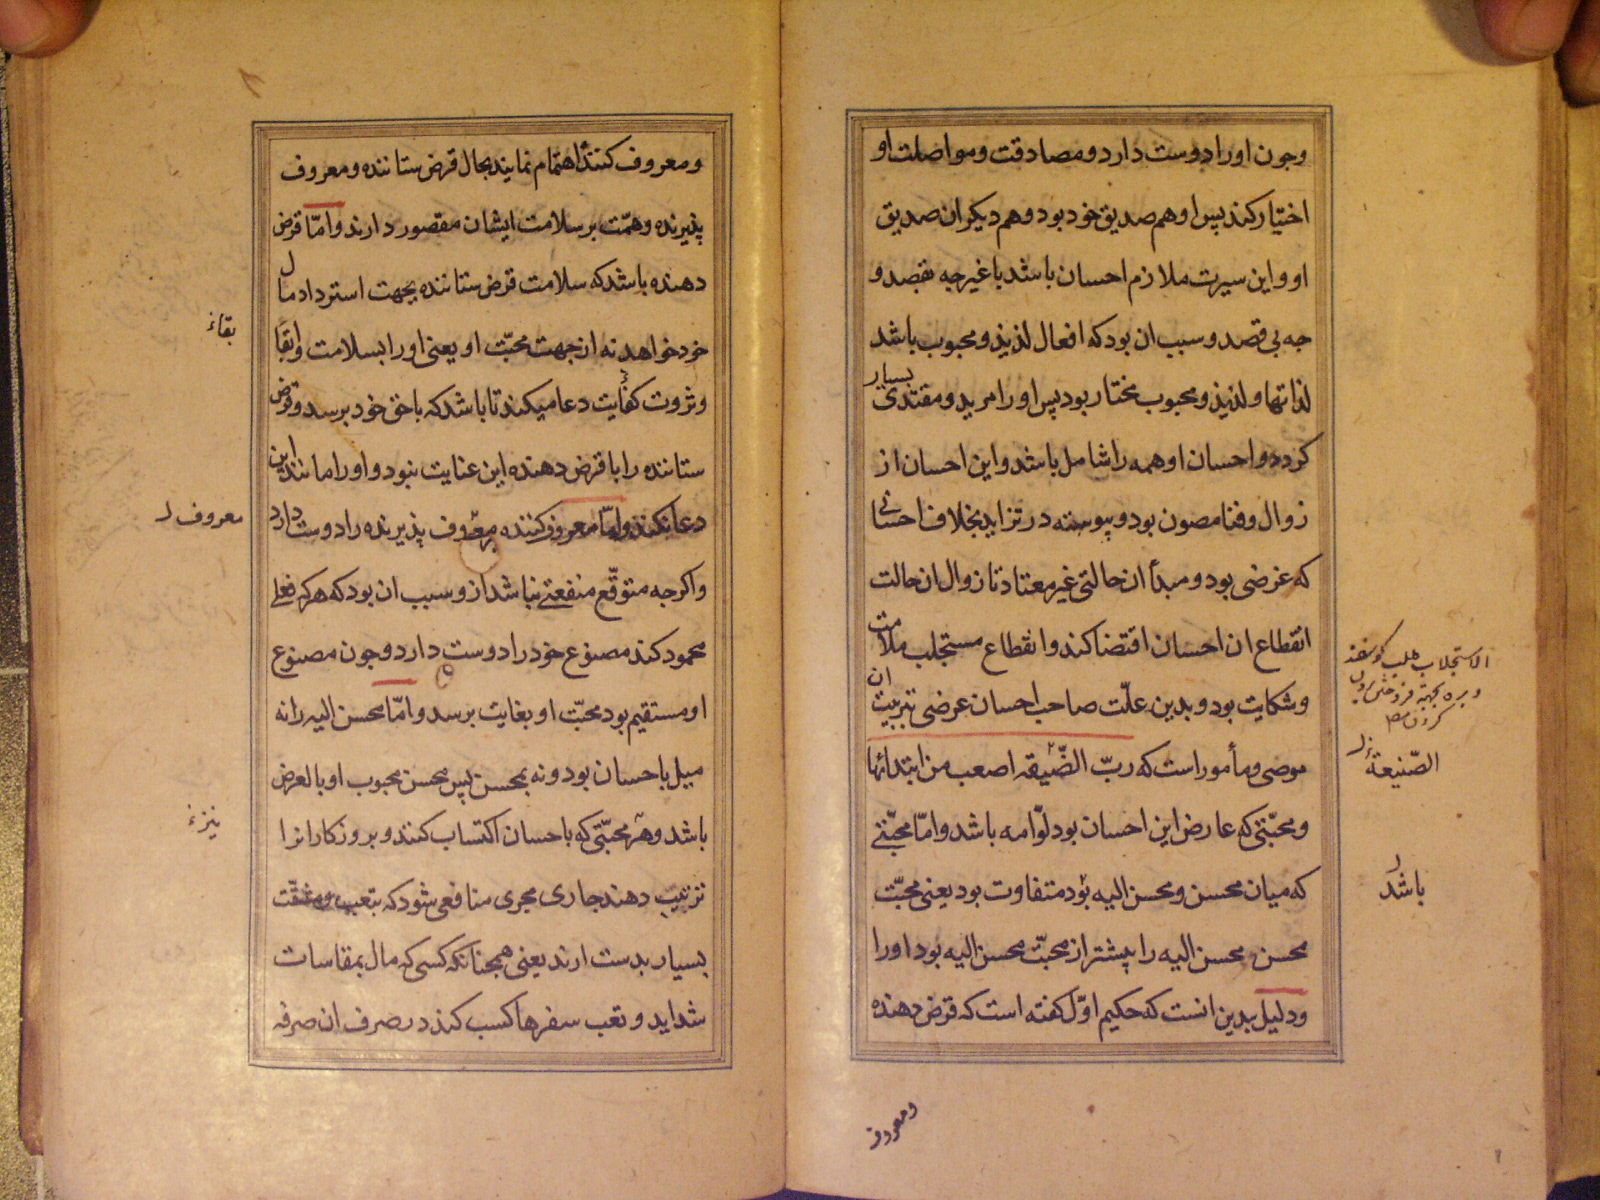 وجون اورا دوست دارد ومصادقت ومواصلت او
اختیار کند پس او هم صدیق خود بود وهم دیکران صدیق
او واین سیرت ملازم احسان باشد با غیر جه بقصد و
جه بی قصد وسبب ان بود که افعال لذیذ ومحبوب باشد
لذاتها ولذیذ ومحبوب مختار بود پس اورا مرید ومقتدی بسیار
کردد واحسان او همه را شامل باشد واین احسان از
زوال وفنا مصون بود وپیوسته در تزاید بخلاف احسانی
که عرضی بود ومبدأ ان حالتی غیر معتاد تا زوال ان حالت
انقطاع ان احسان اقتضا کند وانقطاع مستجلب ملامت
وشکایت بود وبدین علّت صاحب احسان عرضی تربیت ان
موصی ومأمور است که ربّ الضّیقه اصعب من ابتدائها
ومحبّتی که عارض این احسان بود لوّامه باشد وامّا محبّتی
که میان محسن ومحسن الیه بود متفاوت بود یعنی محبّت
محسن محسن الیه را پیشتر از محبّت محسن الیه بود اورا
ودلیل بدین انست که حکیم اوّل کفته است که قرض دهنده
الصّنیعة
باشد
ومعروف
ومعروف کننده اهتمام نمایند بحال قرض ستاننده ومعروف
پذیرنده وهمّت بر سلامت ایشان مقصور دارند وامّا قرض
دهنده باشد که سلامت قرض ستاننده بجهت استرداد مال
خود خواهد نه از جهت محبّت او یعنی اورا بسلامت وابقا
وثروت کفایت دعا میکند تا باشد که با حق خود برسد وقرض
ستاننده را با قرض دهنده این عنایت نبود واورا مانند این
دعا نکند وامّا معروف کننده معروف پذیرنده را دوست دارد
واکرجه متوقّع منفعتی نباشد ازو سبب ان بود که هرکه فعلی
محمود کند مصنوع خود را دوست دارد وجون مصنوع
او مستقیم بود محبّت او بغایت برسد وامّا محسن الیه رانه
میل باحسان بود ونه بمحسن پس محسن محبوب او بالعرض
باشد وهر محبّتی که باحسان اکتساب کنند وبروزکار انرا
ترتیب دهند جاری مجری منافعی شود که بتعب ومشقّت
بسیار بدست ارند یعنی همجنانکه کسی که مال بمقاسات
شداید وتعب سفرها کسب کند در صرف ان صرفه
بقاء
معروف